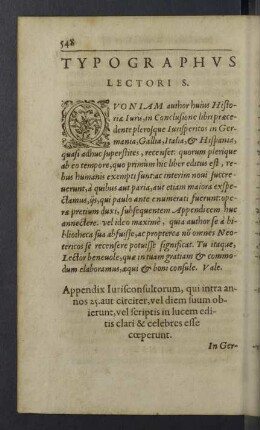 548
TYPOGRAPHVS
LECTORI S.
QVONIAM author huius Histo-
riæ Iuris, in Conclusione libri præce-
dente plerosque Iurisperitos in Ger-
mania, Gallia, Italia, & Hispania,
quasi adhuc superstites, recenset: quorum plerique
ab eo tempore, quo primùm hic liber editus est, re-
bus humanis exempti sunt: ac interim noui succre-
uerunt, à quibus aut paria, aut etiam maiora exspe-
ctamus, ijs, qui paulò ante enumerati fuerunt: ope-
ræ pretium duxi, subsequentem Appendicem huc
annectere: vel ideo maximè, quia author se à bi-
bliotheca sua abfuisse, ac propterea nō omnes Neo-
tericos se recensere potuisse significat. Tu itaque,
Lector beneuole, quæ in tuam gratiam & commo-
dum elaboramus, æqui & boni consule. Vale.
Appendix Iurisconsultorum, qui intra an-
nos 25. aut circiter, vel diem suum ob-
ierunt, vel scriptis in lucem edi-
tis clari & celebres esse
cœperunt.
In Ger-